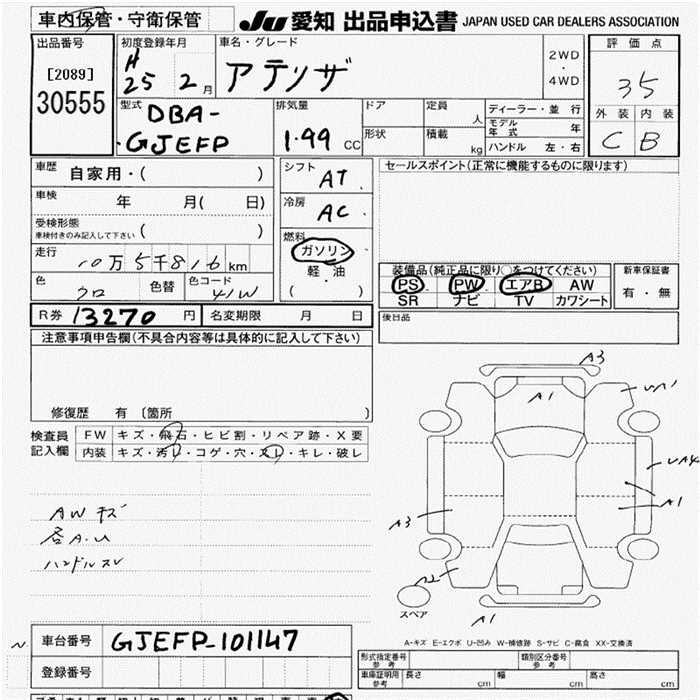 車内保管・守衛保管
JU 愛知 出品申込書 JAPAN USED CAR DEALERS ASSOCIATION
出品番号
[2089]
30555
初度登録年月
H
25 2月
車名・グレード
アテンザ
2WD
・
4WD
評価点
35
外装 内装
C B
型式
DBA-
GJEFP
排気量
1.99 CC
ドア
定員
人
形状
積載
kg
ディーラー・並行
モデル
年式
年
ハンドル 左・右
車歴
自家用・( )
車検
年 月( 日)
受検形態
車検付きのみ記入して下さい
( )
走行
10万5千816km
色
クロ
色替
色コード
41W
シフト
AT
冷房
AC
燃料
ガソリン
軽・油
( )
セールスポイント(正常に機能するものに限ります)
装備品(純正品に限り○をつけてください)
PS PW エアB AW
SR ナビ TV カワシート
新車保証書
有・無
R券 13270円
名変期限 月 日
後日品
注意事項申告欄(不具合内容等は具体的に記入して下さい)
修復歴 有 〔箇所 〕
検査員
記入欄
FW キズ・飛石・ヒビ割・リペア跡・X要
内装 キズ・汚レ・コゲ・穴・スレ・キレ・破レ
AWキズ
各A.U
ハンドルスレ
A3
A1
UA1
UA4
A1
A3
A2
A1
スペア
A-キズ E-エクボ U-凹み W-補修跡 S-サビ C-腐食 XX-交換済
車台番号
GJEFP-101147
登録番号
形式指定番号
参考
類別区分番号
参考
車庫証明用
参考
長さ cm
幅 cm
高さ cm